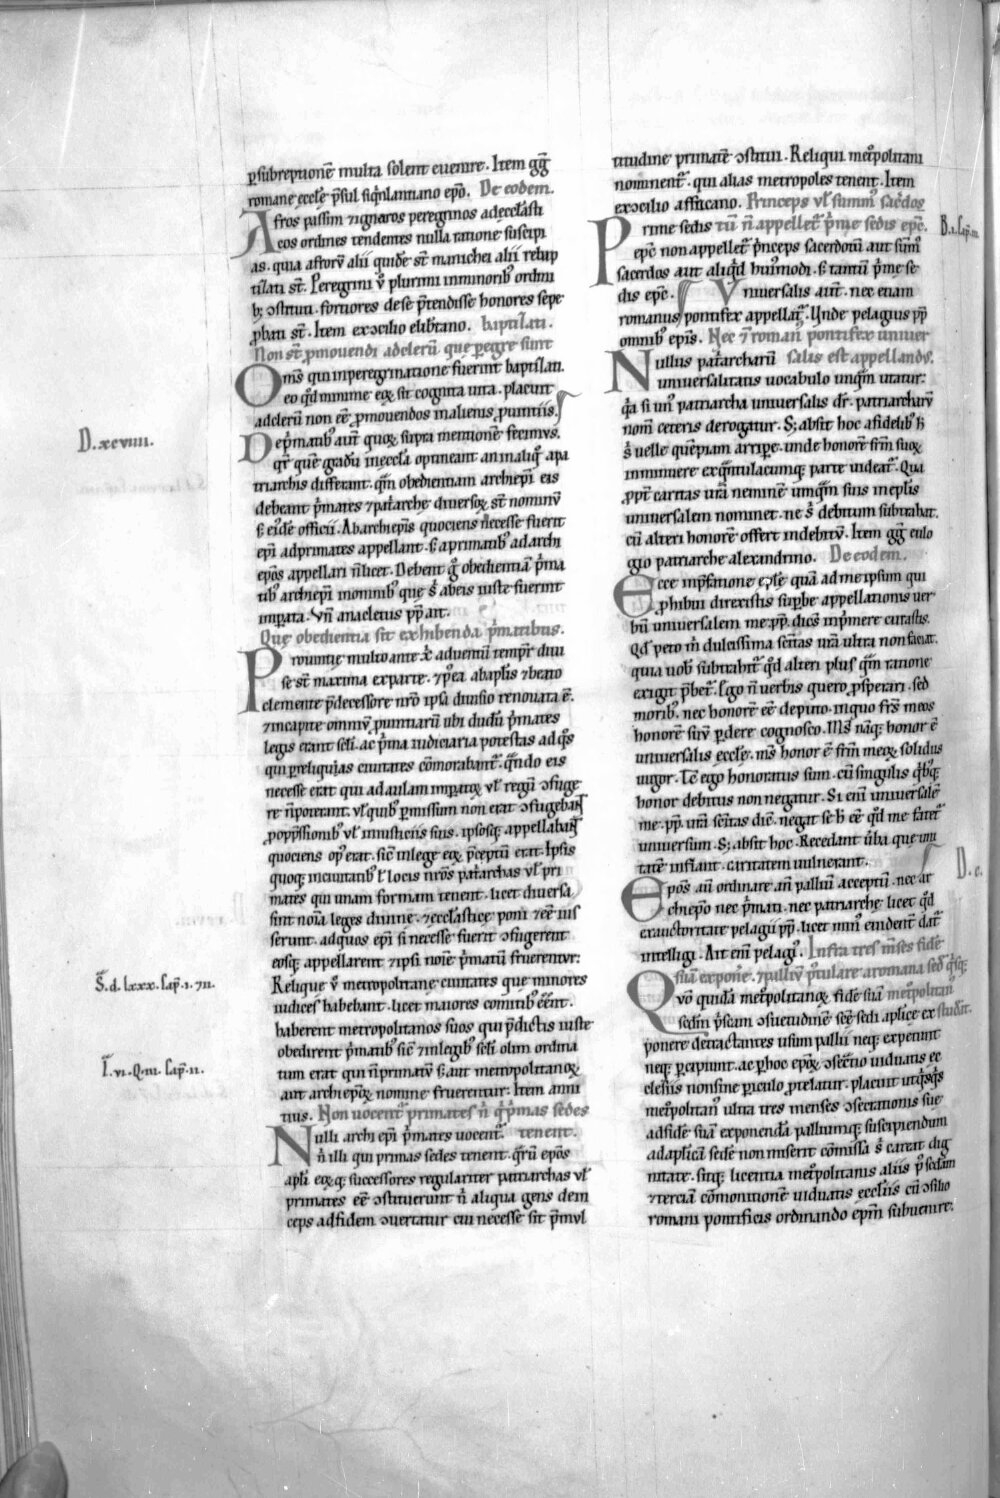 p̲subreptionē multa solent euenire. Item gḡ
romane eccłe p̄sul siq̄lantano ep̄o. De eodem.
Afros passim ⁊ignaros peregrinos adeccłasti
cos ordines tendentes nulla ratione suscipi
as. quia afforv̄ alii quidē st̄ manichei alii rebap
tizati st̄. Peregrini v̊ plurimi inminorib; ordini
b; ɔstituti. fortiores dese p̄tendisse honores sepe
ꝓbati st̄. Item exɔcilio elibtano. baptizati.
Non st̄ ꝓmouendi adclerū que p̲egre sunt
Om̄s qui inperegrinatione fuerint baptizati.
eo qd̄ minime eoꝝ sit cognita uita. placuit
adclerū non eē ꝓmouendos inalienis ꝓuintiis.
Dep̄matib; aut̄ quoꝝ supra mentionē fecimus.
qr̄ quē gradū ineccła optineant an inaliq̊ apa
triarchis differant. qm̄ obedientiam archiep̄i eis
debeant p̄mates ⁊pat̄arche diuersoꝝ st̄ nominū
s; eiusdē officii. Abarchiep̄is quociens n̄ecesse fuerit
ep̄i adprimates appellant. s; aprimatib; ad archi
ep̄os appellari n̄licet. Debent g̊ obedientiā p̄ma
tib; archiep̄i inomnib; que s; abeis iuste fuerint
impata. Vn̄ anacletus pp̄ ait.
Que obedientia sit exhibenda p̄matibus.
Prouintie multo ante x̄ aduentū temp̲r diui
se st̄ maxima exparte. ⁊p̲ea abaplis ⁊beato
clemente p̄decessore nr̄o ip̄sa diuisio renouata ē.
⁊incapite omniū ꝓuintiarū ubi dudū p̄mates
legis erant scl̄i. ac p̄ma iudiciaria potestas ad qo̊s
qui p̲reliquas ciuitates cōmorabant̄. qn̄do eis
necesse erat qui ad aulam impatoꝝ ul̄ regū ɔfuge
re n̄poterant. ul̄quib; p̲missum non erat ɔfugebant
ꝓopp̄ssionib; ul̄ iniusticiis suis. ip̄sosq; appellabant
quociens op; erat. sic̄ inlege eoꝝ p̄ceptū erat. Ipsis
quoq; inciuitatib; t̄ locis nr̄os pat̄archas ul̄ pri
mates qui unam formam tenent. licet diuersa
sint noīa leges diuine. ⁊eccłastice poni ⁊eē ius
serunt. adquos ep̄i si necesse fuerit ɔfugerent
eosq; appellarent ⁊ip̄si noīe p̄matū fruerentur:
Relique v̊ metropolitane ciuitates que minores
iudices habebant. licet maiores comitib; eēnt.
haberent metropolitanos suos qui p̄dictis iuste
obedirent p̄matib; sic̄ ⁊inlegib; scl̄i olim ordina
tum erat qui n̄primatv̄ s; aut metropolitanoꝝ
aut archiep̄oꝝ nomine fruerentur: Item anni
tius. Non uocent̄ primates n̄ q̊ p̄mas sedes
Nulli archi ep̄i p̄mates uocent̄. tenent.
n̄ illi qui primas sedes tenent. qr̄ū ep̄os
apl̄i eoꝝq; successores regulariter patriarchas ul̄
primates eē ɔstituerunt n̄ aliqua gens dein
ceps adfidem ɔuertatur cui necesse sit p̄mul
D. xcviiii.
S̄. d. lxxx. cap̄. i. ⁊ii.
Ī. vi. Q. iii. cap̄. ii.
titudine primatē ɔstitui. Reliqui met̄politani
nominent̄. qui alias metropoles tenent. Item
exɔcilio affricano. Princeps ul̄ summ; sac̄dos
Prime sedis tm̄ n̄ appellet̄ p̄me sedis ep̄c.
ep̄c non appellet̄ p̄nceps sacerdotū aut sum̄
sacerdos aut aliq̊d hui;modi. s; tantū p̄me se
dis ep̄c. Vniuersalis aut̄. nec etiam
romanus pontifex appellat̄. Unde pelagius pp̄
omnib; ep̄is. Nec ⁊roman; pontifex uniuer
Nullus pat̄archarū salis est appellands.
uniuersalitatis uocabulo unq̄m utatur:
q̄a si un; patriarcha uniuersalis dr̄. patriarcharū
nom̄ ceteris derogatur. S; absit hoc afidelib;
uelle quēpiam arripe. unde honorē frm̄ suoꝝ
imminuere exq̄ntulacumq; parte uideat̄. Qua
ꝓpt̄ caritas ur̄a neminē umq̄m suis inep̄lis
uniuersalem nominet. ne s; debitum subtrahat.
cū alteri honorē offert indebitv̄. Item gḡ eulo
gio patriarche alexandrino. De eodem.
Ecce inp̄fatione ep̄le quā ad me ipsum qui
ꝓhibui direxistis sup̲be appellationis uer
bū uniuersalem me pp̄. dice̊s inp̄mere curastis.
Qd̄ peto m̄ dulcissima sc̄itas ur̄a ultra non faciat.
quia uob̄ subtrahit̄ qd̄ alteri plus q̄m ratione
exigit p̄bet̄. Ego n̄ uerbis quero ꝓsperari. sed
morib;. nec honorē eē deputo. inquo frs̄ meos
honorē suv̄ p̲dere cognosco. Ms̄ nāq; honor ē
uniuersalis eccłe. ms̄ honor ē frm̄ meoꝝ solidus
uigor. Tc̄ ego honoratus sum. cū singulis q̊b;q;
honor debitus non negatur. Si eni uniuersalē
me. pp̄. ur̄a sc̄itas dic̄. negat se h̄ eē qd̄ me fatet̄
uniuersum. S; absit hoc. Recedant ūba que uni
tatē inflant. caritatem uulnerant.
Epos an̄ ordinare an̄ palliū acceptū. nec ar
chiep̄o nec p̄mati. nec patriarche licet qd̄
exauctoritate pelagii pp̄. licet nim; euident̄ dat̄
intelligi. Ait eni pelagi;. Infra tres m̄ses fidē
Qsuā expone. ⁊palliv̄ p̄tulare aromana sed q̊sq;.
uo̊ quidā met̄politanoꝝ fidē suā met̄politan̄
sedm̄ p̄scam ɔsuetudinē scē sedi aplice ex studeat.
ponere detractantes usum pallii neq; expetunt
neq; p̲cipiunt. ac p̲hoc ep̄oꝝ ɔsec̄tio uiduatis ec
clesiis nonsine p̲iculo ꝓtelatur. placuit utq̊sq̊s
met̄politan; ultra tres menses ɔsecrationis sue
adfidē suā exponendā palliumq; suscipiendum
adaplicā sedē non miserit cōmissa s; careat dig
nitate. sitq; licentia met̄politanis aliis p; sc̄dam
⁊terciā cōmonitionē uiduatis eccłiis cū ɔsilio
romani pontificis ordinando ep̄m subuenire.
B. i. cap̄. iii.
D. c.